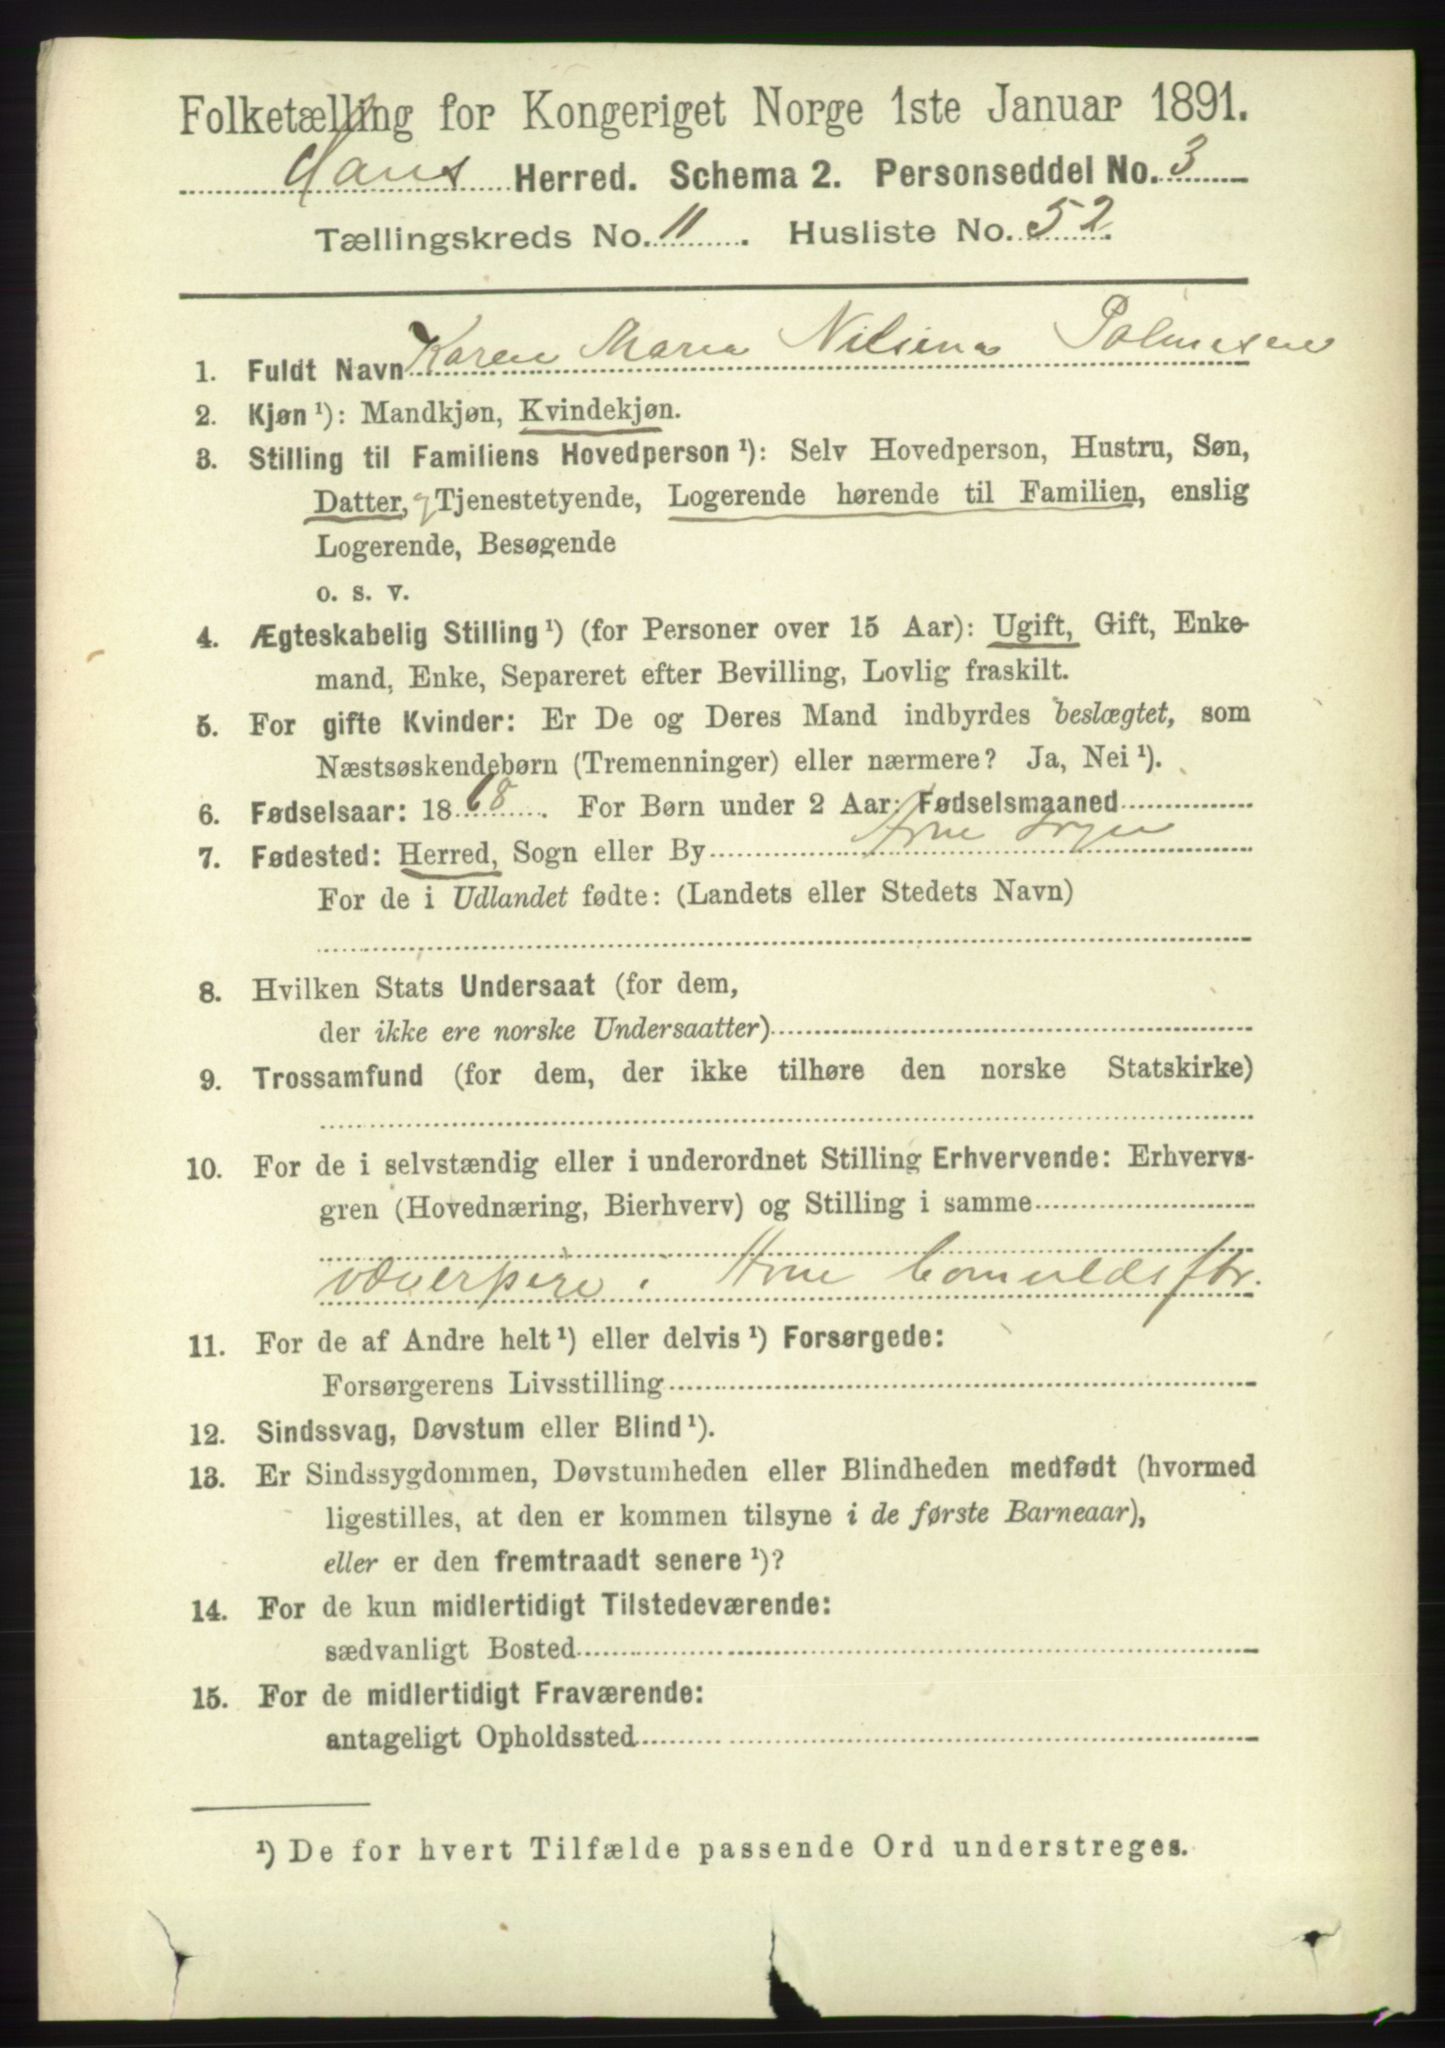 Folketælling for Kongeriget Norge 1ste Januar 1891.
Haus Herred. Schema 2. Personseddel No. 3
Tællingskreds No. 11. Husliste No. 52.
1. Fuldt Navn Karen Maria Nilsina Palmesen
2. Kjøn ¹): Mandkjøn, Kvindekjøn.
3. Stilling til Familiens Hovedperson ¹): Selv Hovedperson, Hustru, Søn,
Datter, Tjenestetyende, Logerende hørende til Familien, enslig
Logerende, Besøgende
o. s. v.
4. Ægteskabelig Stilling ¹) (for Personer over 15 Aar): Ugift, Gift, Enke-
mand, Enke, Separeret efter Bevilling, Lovlig fraskilt.
5. For gifte Kvinder: Er De og Deres Mand indbyrdes beslægtet, som
Næstsøskendebørn (Tremenninger) eller nærmere? Ja, Nei ¹).
6. Fødselsaar: 1868. For Børn under 2 Aar: Fødselsmaaned
7. Fødested: Herred, Sogn eller By Arne
For de i Udlandet fødte: (Landets eller Stedets Navn)
8. Hvilken Stats Undersaat (for dem,
der ikke ere norske Undersaatter)
9. Trossamfund (for dem, der ikke tilhøre den norske Statskirke)
10. For de i selvstændig eller i underordnet Stilling Erhvervende: Erhvervs-
gren (Hovednæring, Bierhverv) og Stilling i samme
væverpige i Arne bomuldsfbr.
11. For de af Andre helt ¹) eller delvis ¹) Forsørgede:
Forsørgerens Livsstilling
12. Sindssvag, Døvstum eller Blind ¹).
13. Er Sindssygdommen, Døvstumheden eller Blindheden medfødt (hvormed
ligestilles, at den er kommen tilsyne i de første Barneaar),
eller er den fremtraadt senere ¹)?
14. For de kun midlertidigt Tilstedeværende:
sædvanligt Bosted
15. For de midlertidigt Fraværende:
antageligt Opholdssted
¹) De for hvert Tilfælde passende Ord understreges.